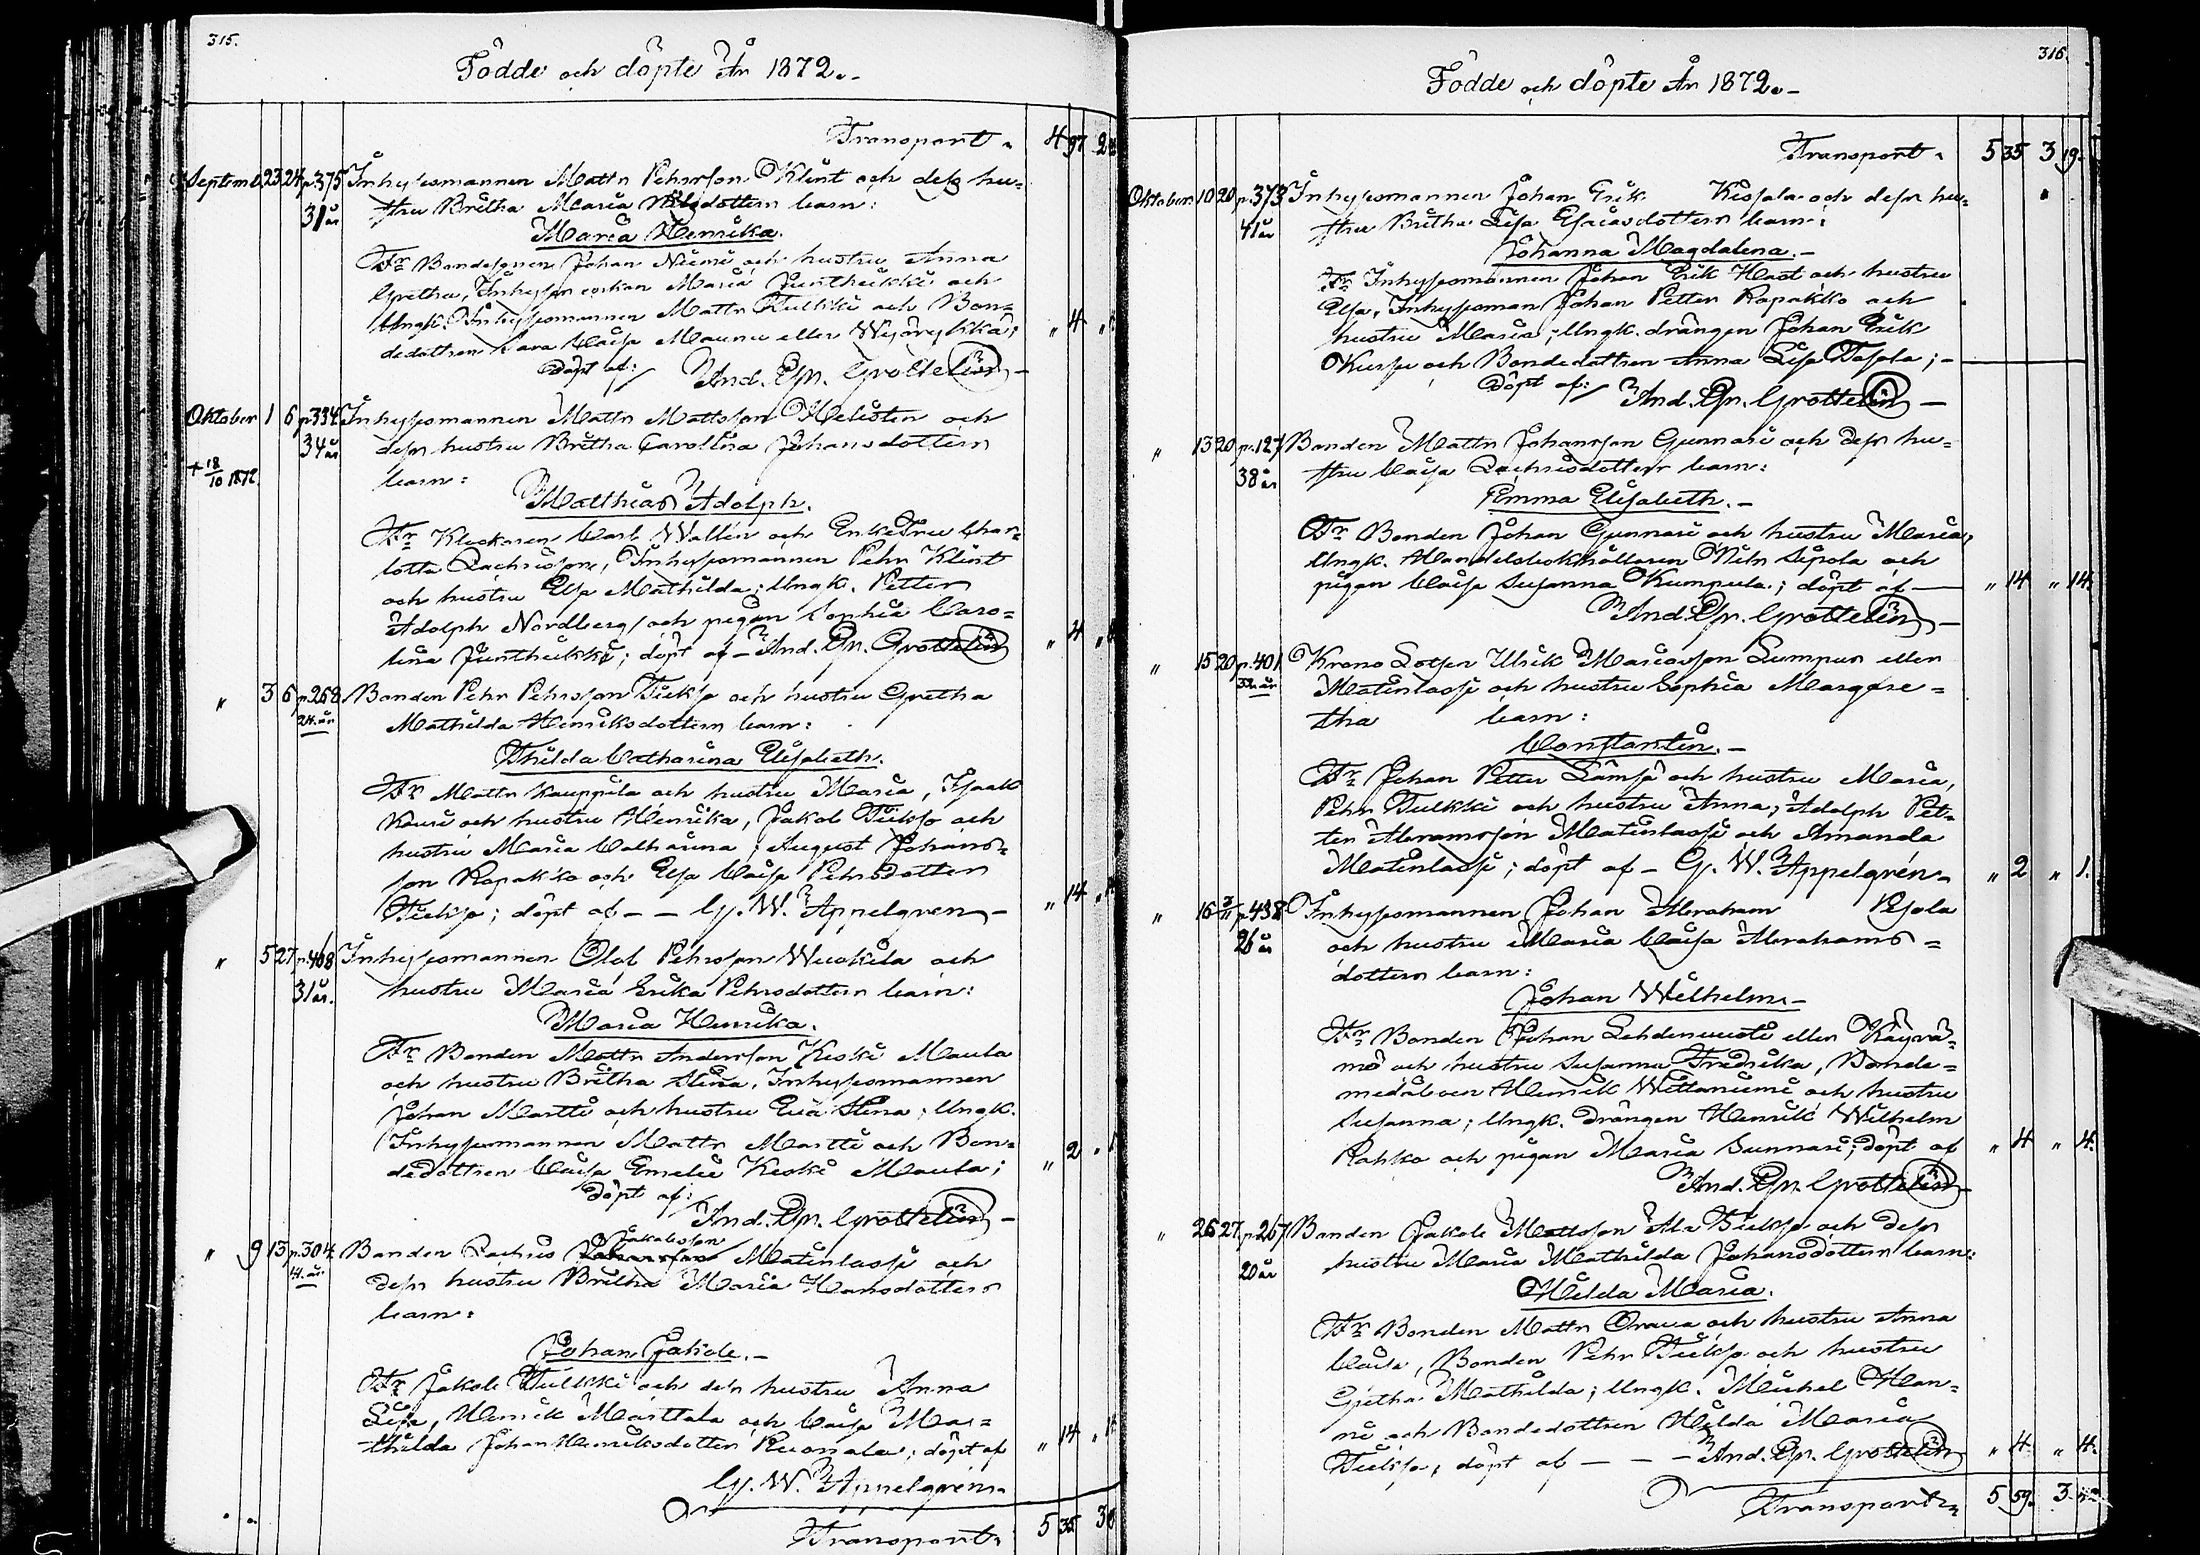 315.
Födde och döpte År 1872.-
Transport
4 97 2
Septemb. 23 24 p.375 Inhysesmannen Matts Pehrsson Klint och dess hu-
31 år stru Britha Maria dottern barn:
Maria Henrika.
Fr Bondesonen Johan Niemi och hustru Anna
Gretha, Inhyses enkan Maria Junthikki och
Ungk. Inhysesmannen Matts Tulkki och Bon-
dedottren Sara Cajsa Maunu eller " 4 "
Döpt af: And. Gr. Grottelin
Oktober 1 6 p.334 Inhysesmannen Matts Mattsson Helistén och
34 år dess hustru Britha Carolina Johansdottern
+ 18/10 1872 barn:
Matthias Adolph.
Fr Klockaren Carl Wallin och Enkefru Char-
lotta Zachrisson, Inhysesmannen Pehr Klint
och hustru Elsa Mathilda; Ungk. Petter
Adolph Nordberg och pigan Sophia Caro-
lina Junthikki; döpt af - And. Gr. Grottelin " 4 "
" 3 6 p.268 Bonden Pehr Pehrsson Tiekso och hustru Gretha
24 år Mathilda Henriksdottern barn:
Thilda Catharina Elisabeth.
Fr Matts Kauppila och hustru Maria, Isaak
Kousi och hustru Henrika, Jakob Tiekso och
hustru Maria Catharina; August Johans-
son Rapakko och Elsa Cajsa Pehrsdotter
Tiekso; döpt af - - G. W. Appelgren - " 14 "
" 5 27 p.468 Inhysesmannen Olof Pehrsson Wuokila och
31 år. hustru Maria Erika Pehrsdottern barn:
Maria Henrika.
Fr Bonden Matts Andersson Keski Maula
och hustru Britha Stina, Inhysesmannen
Johan Martti och hustru Eva Stina; Ungk.
Inhysesmannen Matts Martti och Bon-
dedottren Cajsa Emelie Keski Maula; " 2 "
Döpt af: And. Gr. Grottelin -
Jakobsson
" 9 13 p.304 Bonden Zachris Matinlassi och
41 år dess hustru Britha Maria Hansdottern
barn:
Johan Jakob.-
Fr Jakob Tulkki och dess hustru Anna
Lisa, Henrik Marttala och Cajsa Ma-
thilda Johan Henriksdotter Ruonala; döpt af " 14 "
G. W. Appelgrén.
Transport 5 35 3
316.
Födde och döpte År 1872.-
Transport 5 35 3 19.
Oktober 10 20 p.373 Inhysesmannen Johan Erik Kissala och dess hu-
41 år stru Britha Lisa Esaiasdottern barn:
Johanna Magdalena.-
Fr Inhysesmannen Johan Erik Hast och hustru
Elsa, Inhysesman Johan Petter Rapakko och
hustru Maria; Ungk. drängen Johan Erik
och Bondedottren Anna Lisa Tossola;-
Döpt af: And. Gr. Grottelin -
" 13 20 p.127 Bonden Matts Johansson Gunnari och dess hu-
38 år stru Cajsa Zachrisdottern barn:
Emma Elisabeth.-
Fr Bonden Johan Gunnari och hustru Maria,
Ungk. Handelsbokhållaren Nils Sipola och
pigan Cajsa Susanna Kumpula; döpt af - " 14 " 14.
And. Gr. Grottelin -
" 15 20 p.401 Krono Lotsen Ulrik Mariasson Lumpus eller
32 år Matinlassi och hustru Sophia Margare-
tha barn:
Constantin.-
Fr Johan Petter Lämsä och hustru Maria,
Pehr Tulkki och hustru Anna; Adolph Pet-
ter Abramsson Matinlassi och Amanda
Matinlassi; döpt af - G. W. Appelgrén - " 2 " 1.
" 16 3/11 p.438 Inhysesmannen Johan Abraham Pesola
26 år och hustru Maria Cajsa Abrahams-
dottern barn:
Johan Wilhelm-
Fr Bonden Johan Lehdenuusti eller Käyrä-
mö och hustru Susanna Fredrika, Bonde-
medåboen Henrik Wittaniemi och hustru
Susanna; Ungk. Drängen Henrik Wilhelm
Rahko och pigan Maria Sunnari; döpt af " 4 " 4.
And. Gr. Grottelin -
" 26 27 p.267 Bonden Jakob Mattsson Ala Tiekso och dess
20 år hustru Maria Mathilda Johansdottern barn:
Hilda Maria.
Fr Bonden Matts Orava och hustru Anna
Cajsa, Bonden Pehr Tiekso och hustru
Gretha Mathilda; Ungk. Michel Han-
ni och Bondedottren Hilda Maria
Tiekso; döpt af - - - And. Gr. Grottelin " 4. " 4.
Transport 5 59. 3